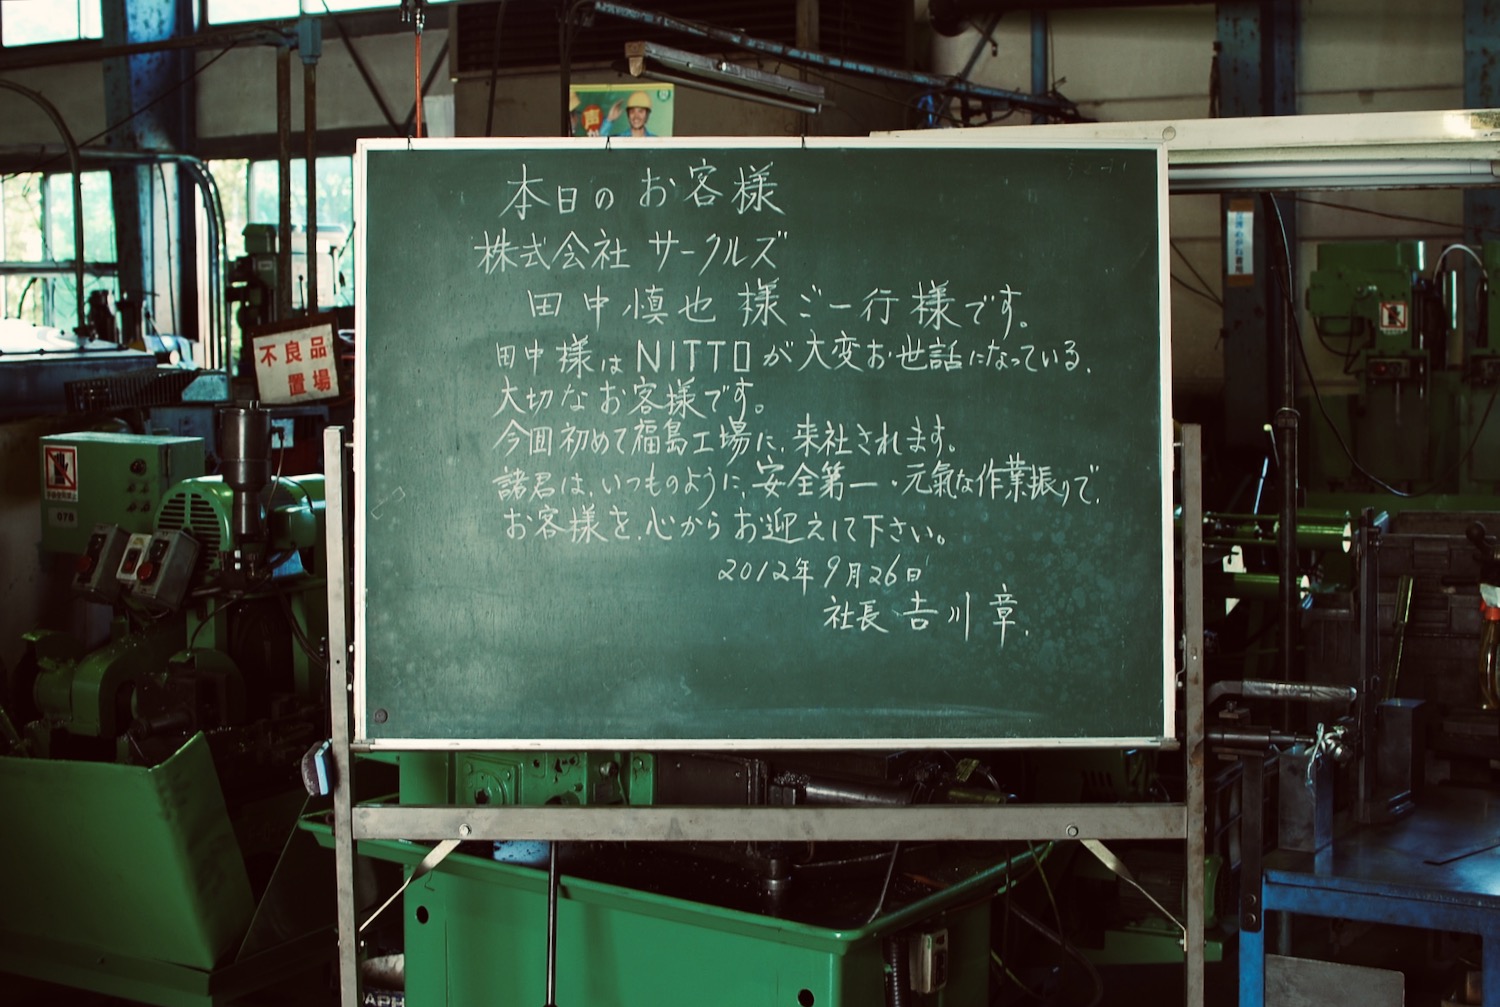 本日のお客様
株式会社 サークルズ
田中慎也 様 ご一行 様です。
田中 様は NITTO が 大変お世話になっている、
大切なお客様です。
今回初めて福島工場に、来社されます。
諸君は、いつものように、安全第一・元氣な作業振りで、
お客様を、心からお迎えして下さい。
2012年9月26日
社長 吉川 章.
不良品
置場
声
078